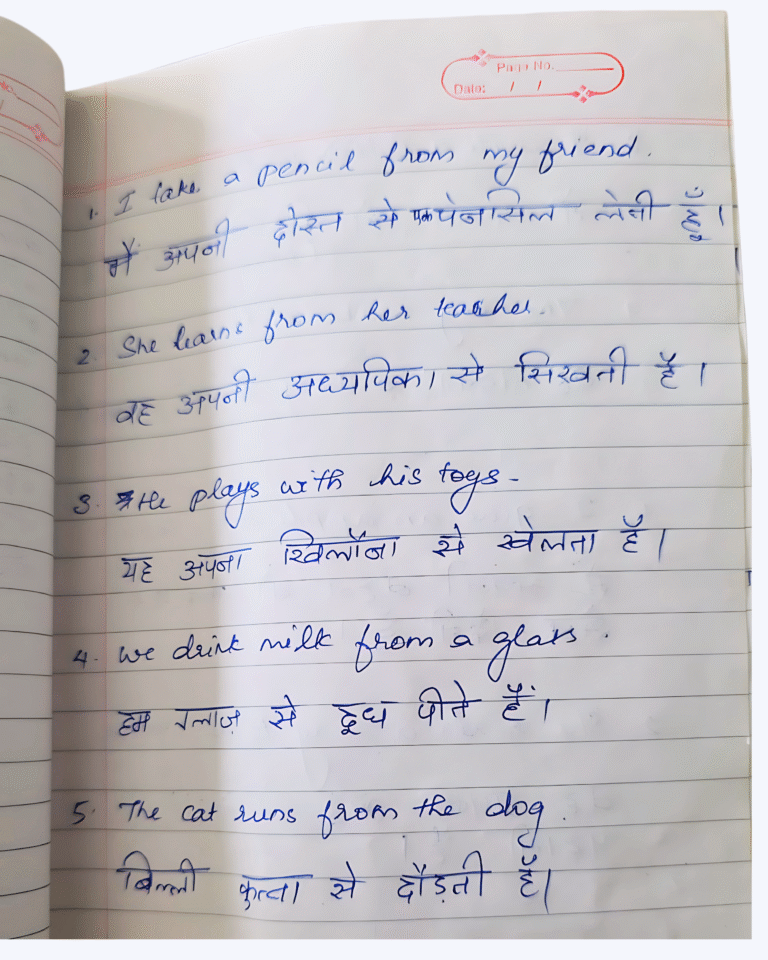 Page No.
Date: / /
1. I take a pencil from my friend.
मैं अपनी दोस्त से एक पेनसिल लेती हूँ।
2. She learns from her teacher.
वह अपनी अध्यपिका से सिखती है।
3. He plays with his toys.
यह अपना खिलौना से खेलता है।
4. We drink milk from a glass.
हम ग्लाज़ से दूध पीते हैं।
5. The cat runs from the dog.
बिल्ली कुत्ता से दौड़ती है।